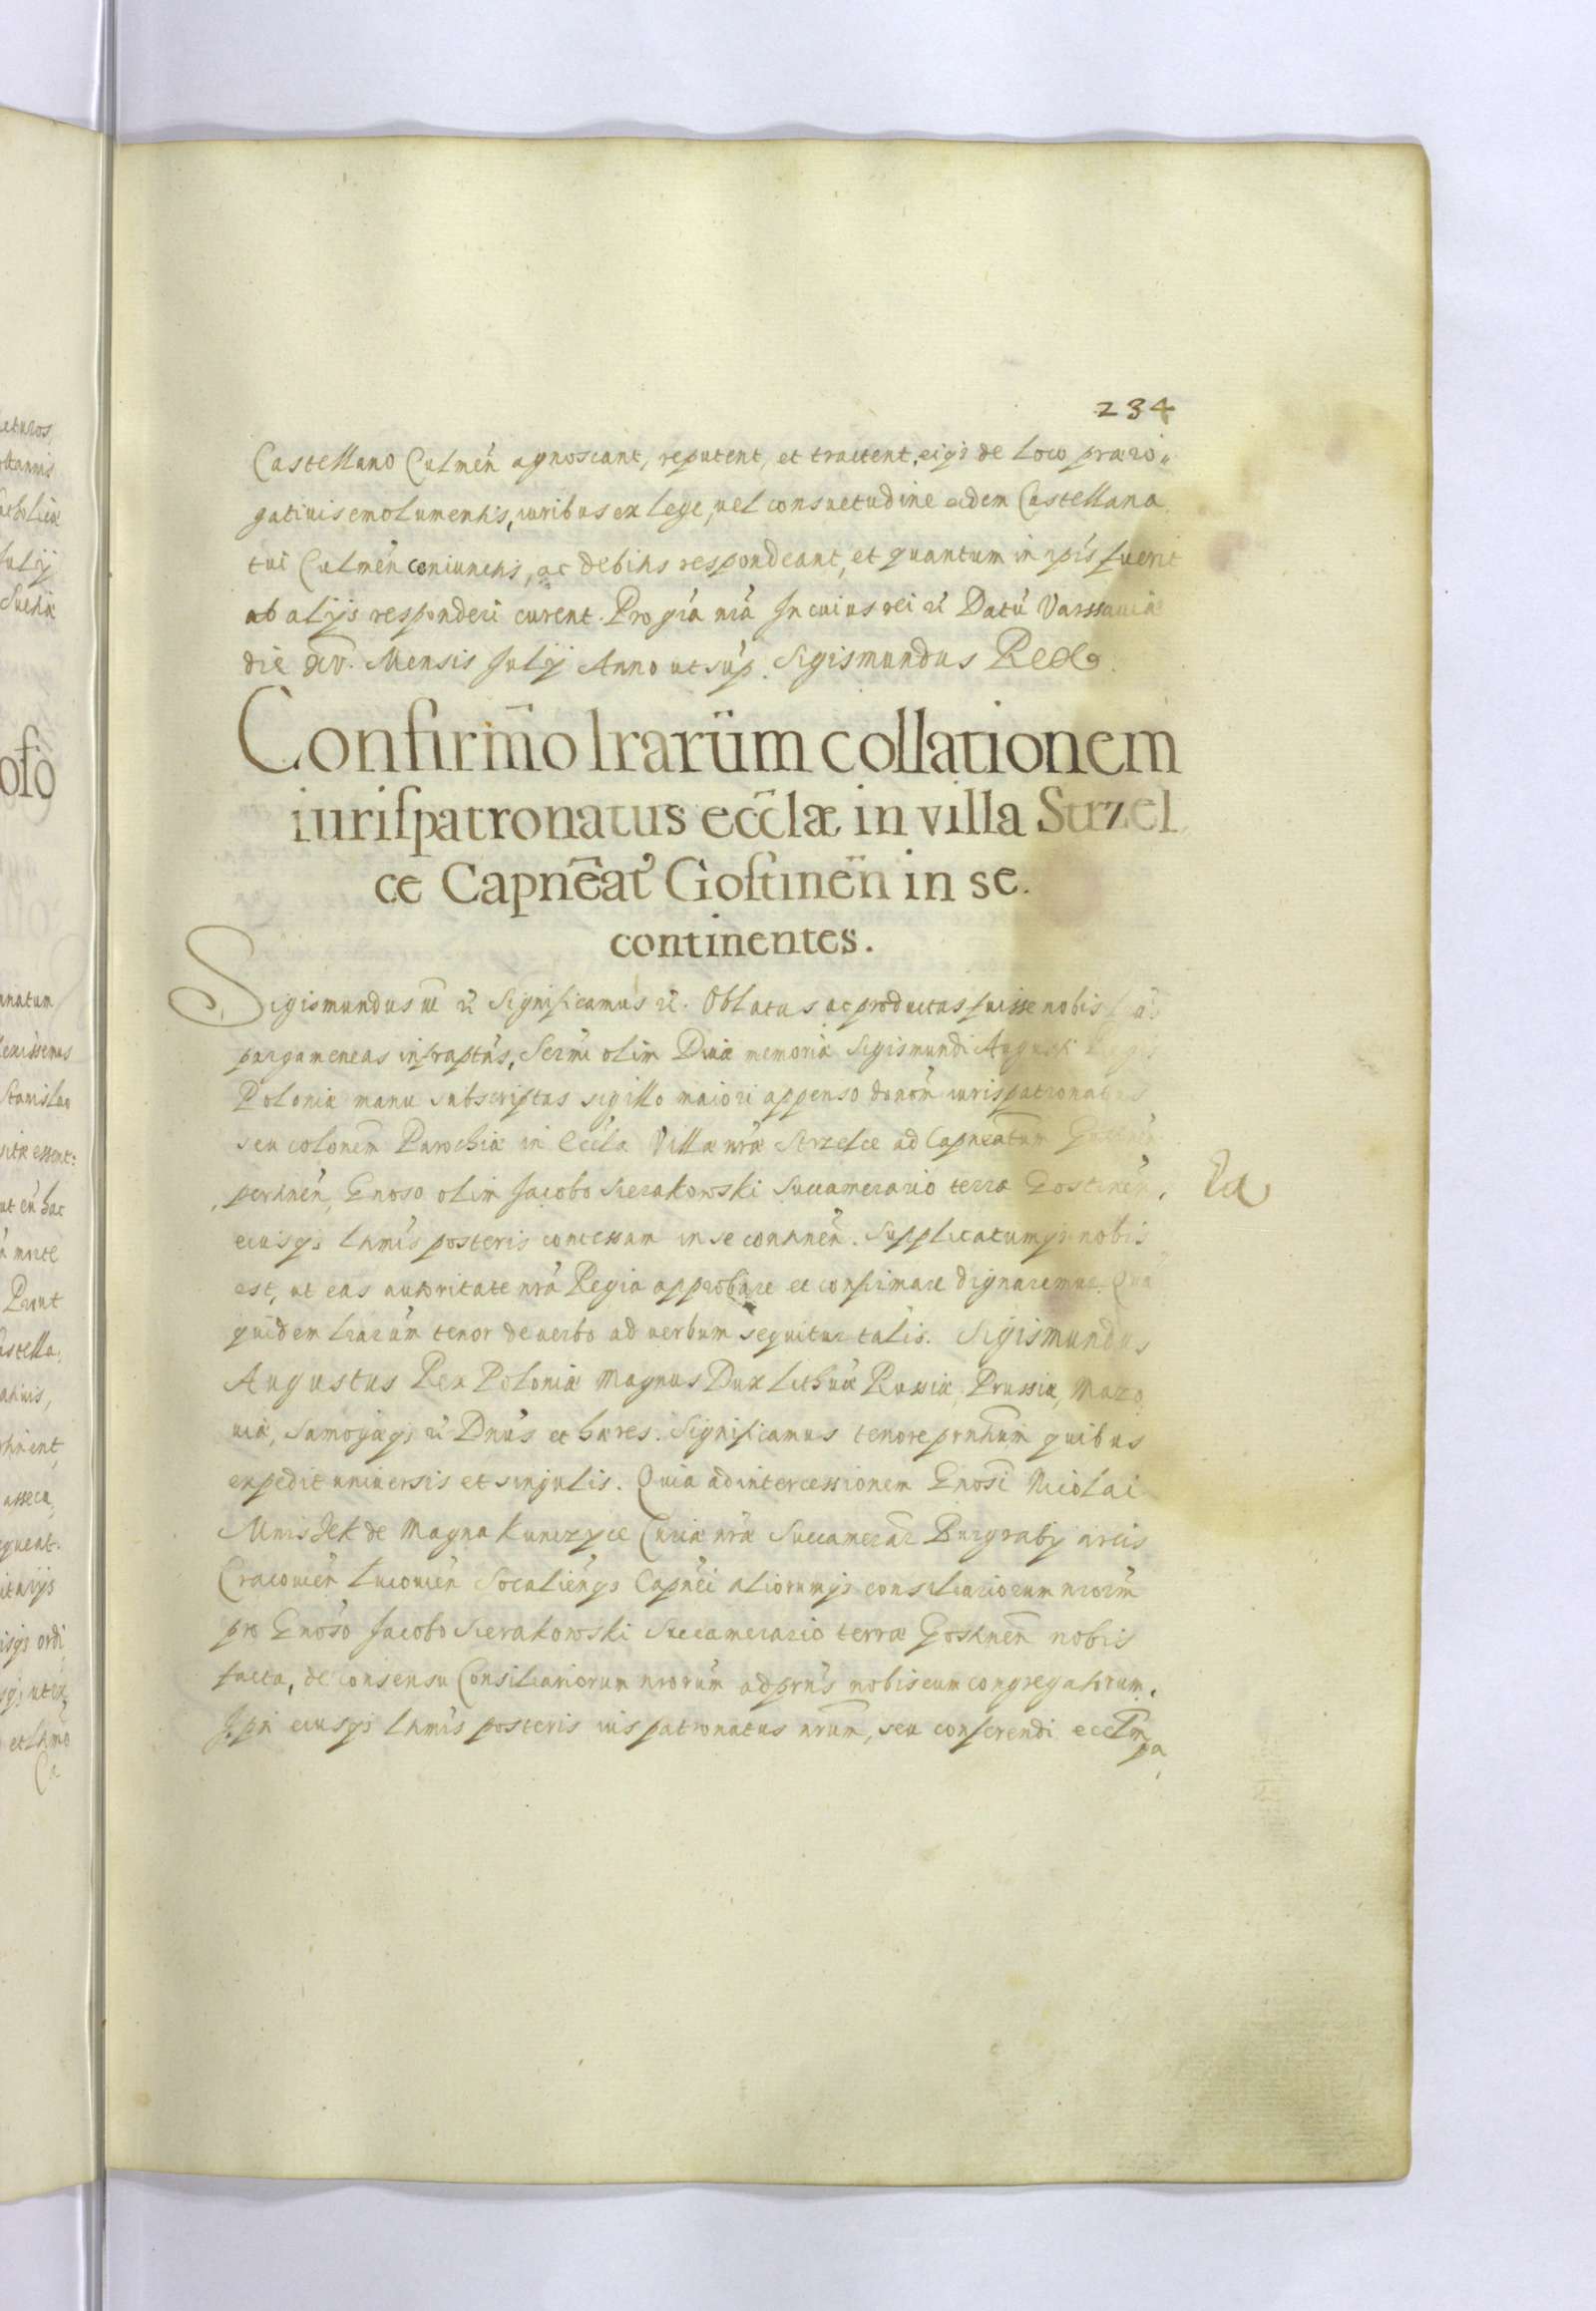 234
Castellano Culmeñ agnoscant, reputent, et tractent, eiqȝ de loco præro„
gatiuis emolumentis, iuribus ex lege, uel consuetudine eidem Castellana
tui Culmeñ coniunctis, ac debitis respondeant, et quantum in ipis fuerit
ab alijs responderi curent. Pro gra nra In cuius rei &c Datu Varssauiæ
die xv. Mensis Julij Anno ut sup. Sigismundus Rex.
Confirmo lrarum collationem
iurispatronatus eccłæ in villa Strzel
ce Capneat Gostineñ in se
continentes.
Sigismundus &c Significamus &c. Oblatas ac productas fuisse nobis
pargameneas infraptas, Sermi olim Diuæ memoriæ Sigismundi Augusti Regis
Poloniæ manu subscriptas sigillo maiori appenso donom iurispatronatus
seu colonem Parochiæ in Eccla Villæ nræ Strzelce ad Capneatum
pertineñ, Gnoso olim Jacobo Sierakowski Succamerario terræ Gostineñ,
eiusqȝ ltmis posteris concessam in se contineñ. Supplicatumqȝ nobis
est, ut eas autoritate nra Regia approbare et confirmare dignaremur. Qua
quidem lrarum tenor de uerbo ad uerbum sequitur talis. Sigismundus
Augustus Rex Poloniæ Magnus Dux Lithuæ Russiæ, Prussiæ, Mazo
uiæ, Samogiæqȝ &c Dnus et hæres. Significamus tenore prntium quibus
expedit uniuersis et singulis. Quia ad intercessionem Gnosi Nicolai
Mniszek de Magna Kunczyce Curiæ nræ Succamerar Burgrabij arcis
Cracouieñ Lucouieñ Socalieñqȝ Capnei aliorumqȝ consiliariorum nrorum
pro Gnoso Jacobo Sierakowski Succamerario terræ Gostineñ nobis
facta, de consensu Consiliariorum nrorum ad prns nobiscum congregatorum.
Ipsi eiusqȝ ltmis posteris ius patronatus nrum, seu conferendi ecclm
pa